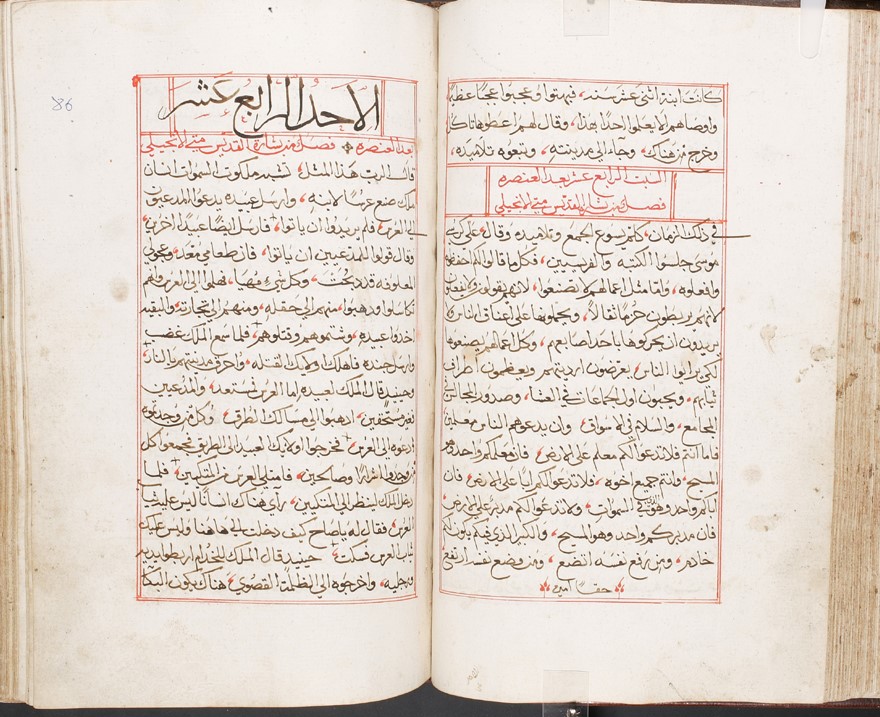 كانت ابنة اثنى عشر سنه، فبهتوا وعجبوا عجبًا عظيمًا
واوصاهم الا يعلموا احدًا بهذا، وقال لهم اعطوها تاكل
وخرج من هناك، وجا الى مدينته، وتبعوه تلاميذه،
السبت الرابع عشر بعد العنصره
فصل من بشارة القديس متى الانجيلى
في ذلك الزمان، كلم يسوع الجمع وتلاميذه وقال، على كرسي
موسى جلسوا الكتبه والفريسيين، فكل ما قالوا لكم احفظوه
وافعلوه، ولا مثل اعمالهم لا تصنعوا، لانهم يقولون ولا يفعلون
لانهم يربطون حزمًا ثقالاً، ويحملوها على اعناق الناس، ولا
يريدون ان يحركوها باحد اصابعهم، وكل اعمالهم يصنعوها
لكي يرايوا الناس، يعرضون ارديتهم ويعظمون اطراف
ثيابهم، ويحبون اول الجماعات في العشا، وصدور المجالس في
المجامع، والسلام في الاسواق، وان يدعوهم الناس معلمين
فاما انتم فلا تدعوا لكم معلم على الارض، فان معلمكم واحد هو
المسيح، وانتم جميع اخوه، فلا تدعوا لكم ابًا على الارض، فان
اباكم واحد وهو في السموات، ولا تدعوا لكم مدبر على الارض
فان مدبركم واحد وهو المسيح، والكبير الذي فيكم يكون لكم
خادم، ومن يرفع نفسه اتضع، ومن وضع نفسه ارتفع
حقًا امين
86
الاحد الرابع عشر
بعد العنصره فصل من بشارة القديس متى الانجيلي
قال الرب هذا المثل، تشبه ملكوت السموات انسان
ملك صنع عرسًا لابنه، وارسل عبيده يدعوا المدعيين
الى العرس، فلم يريدوا ان ياتوا، فارسل ايضًا عبيدًا اخرين
وقال قولوا للمدعيين ان ياتوا، فان طعامي معد، وعجولي
المعلوفه قد ذبحت، وكل شي مهيا، فهلموا الى العرس، وانهم
تكاسلوا وذهبوا، منهم الى حقله، ومنهم الى تجارته، والبقيه
اخذوا عبيده، وشتموهم وقتلوهم، فلما سمع الملك غضب
وارسل جنده فاهلك اولايك القتله، واحرق مدينتهم بالنار
وحينيد قال الملك لعبيده اما العرس فمستعد، والمدعيين
فغير مستحقين، اذهبوا الى مسالك الطرق، وكل من وجدتموه
ادعوه الى العرس، فخرجوا اولايك العبيد الى الطريق فجمعوا كل
من وجدوا اشرارًا وصالحين، فامتلى العرس من المتكيين، فلما
دخل الملك لينظر الى المتكيين، راى هناك انسانًا ليس عليه ثياب
العرس، فقال له يا صاح كيف دخلت الى هاهنا وليس عليك
ثياب العرس فسكت، حينيد قال الملك للخدام اربطوا يديه
ورجليه، واخرجوه الى الظلمة القصوى، هناك يكون البكا